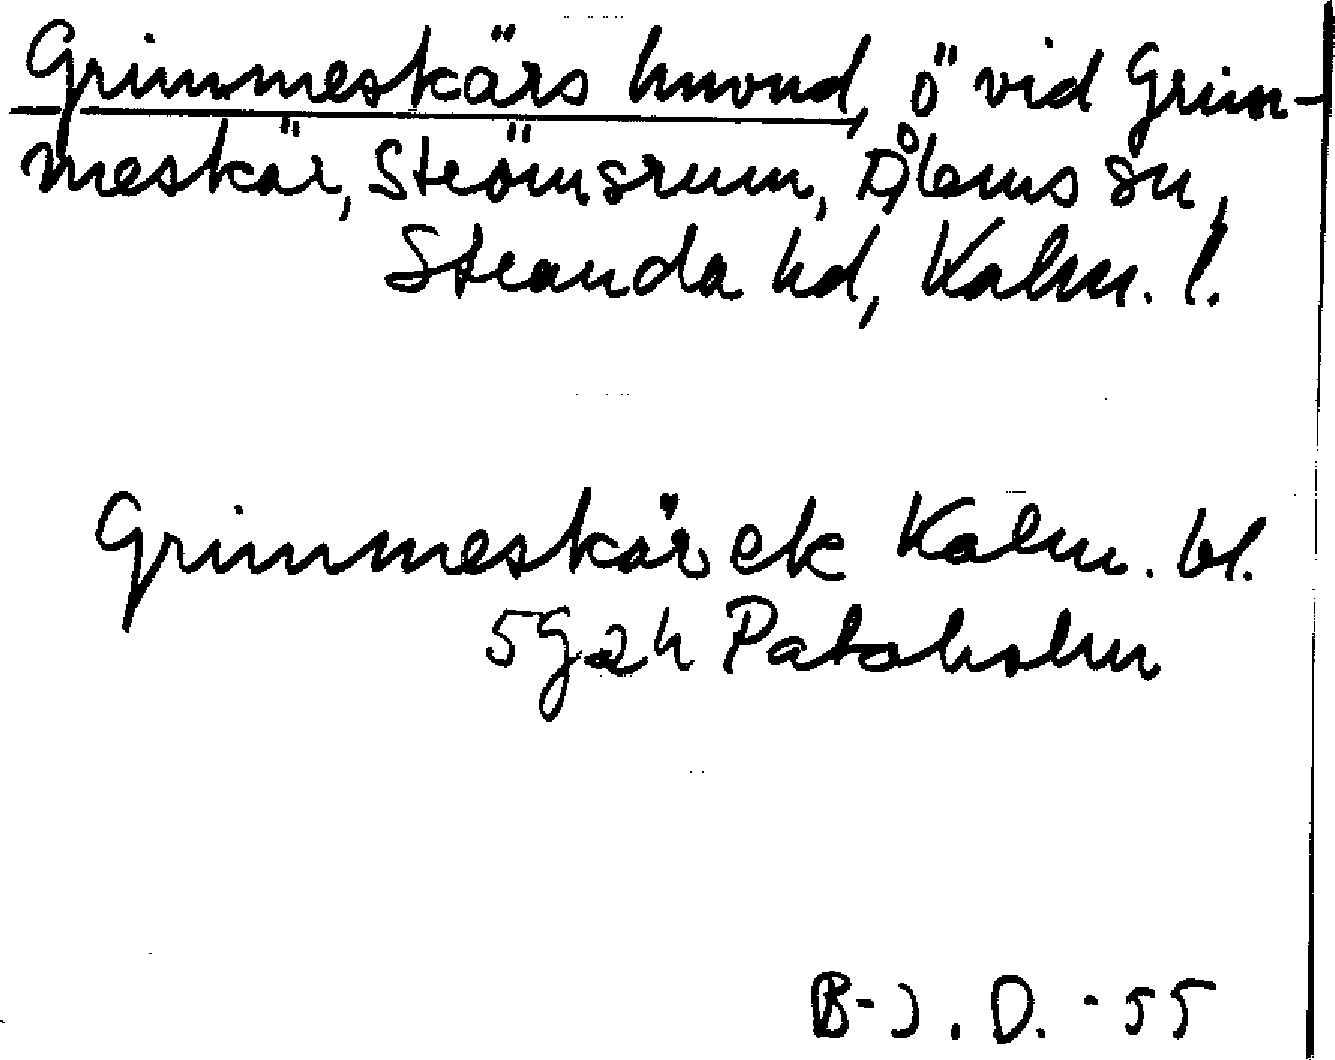 Grimmeskärs huvud, ö vid Grim-
meskär, Strömsrum, Ålems sn,
Stranda hd, Kalm. l.
Grimmeskär ek Kalm. bl.
5G2h Pataholm
B-J. D. -55